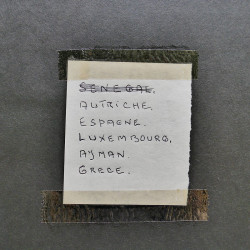 SENEGAL.
AUTRICHE.
ESPAGNE.
LUXEMBOURG.
AYMAN.
GRECE.